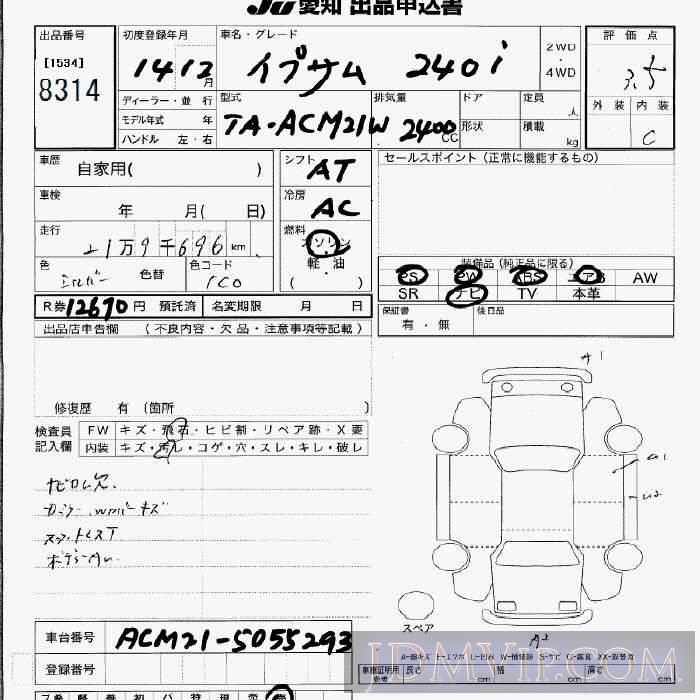 JU 愛知 出品申込書
出品番号
[1534]
8314
初度登録年月
14 12 月
車名・グレード
イプサム 240i
2WD
・
4WD
評価点
3.5
外装 内装
C
ディーラー・並行
モデル年式 年
ハンドル 左・右
型式
TA-ACM21W
排気量
2400 CC
ドア
形状
定員
人
積載
kg
車歴
自家用( )
車検
年 月( 日)
走行
21万9千696 km
色
シルバー
色替
色コード
1C0
シフト
AT
冷房
AC
燃料
ガソリン
軽・油
( )
セールスポイント (正常に機能するもの)
装備品 (純正品に限る)
PS PW ABS エアB AW
SR ナビ TV 本革
R券 12670 円 預託済 名変期限 月 日
保証書
有・無
後日品
出品店申告欄 (不良内容・欠品・注意事項等記載)
修復歴 有 〔箇所 〕
検査員
記入欄
FW キズ・飛石・ヒビ割・リペア跡・X要
内装 キズ・汚れ・コゲ・穴・スレ・キレ・破レ
ナビロム欠
A1
スペア
A2
車台番号 ACM21-5055293
登録番号
A-線キズ E-エクボ U-凹み W-補修跡 S-サビ C-腐食 XX-取替済
車庫証明用
参考
長さ cm 幅 cm 高さ cm
JDMVIP.COM